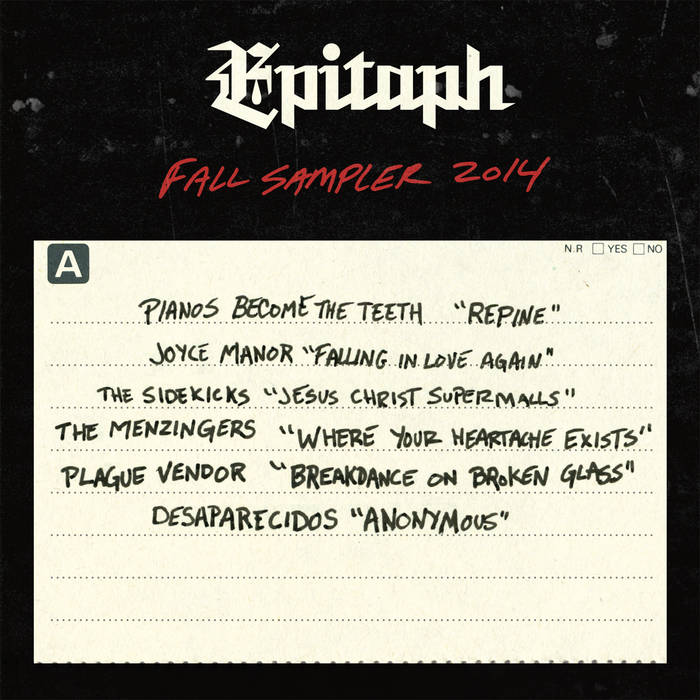 Epitaph
FALL SAMPLER 2014
A
N.R YES NO
PIANOS BECOME THE TEETH "REPINE"
JOYCE MANOR "FALLING IN LOVE AGAIN"
THE SIDEKICKS "JESUS CHRIST SUPERMALLS"
THE MENZINGERS "WHERE YOUR HEARTACHE EXISTS"
PLAGUE VENDOR "BREAKDANCE ON BROKEN GLASS"
DESAPARECIDOS "ANONYMOUS"